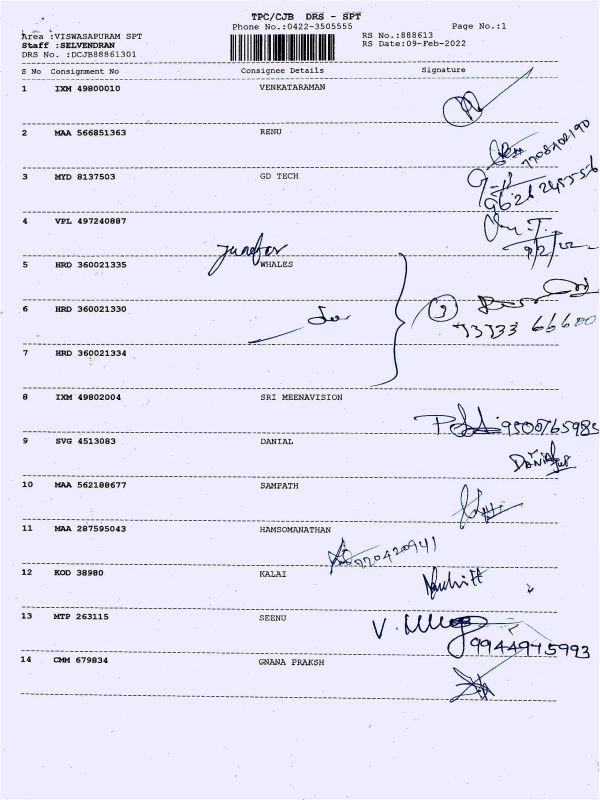 TPC/CJB DRS - SPT
Phone No.:0422-3505555 Page No.:1
Area :VISWASAPURAM SPT RS No.:888613
Staff :SELVENDRAN RS Date:09-Feb-2022
DRS No. :DCJB88861301
S No Consignment No Consignee Details Signature
1 IXM 49800010 VENKATARAMAN
2 MAA 566851363 RENU
7708402190
3 MYD 8137503 GD TECH
9626245556
4 VPL 497240887
9/2/22
5 HRD 360021335 WHALES
6 HRD 360021330
3
73733 66600
7 HRD 360021334
8 IXM 49802004 SRI MEENAVISION
9500765985
9 SVG 4513083 DANIAL
DANIAL
10 MAA 562188677 SAMPATH
11 MAA 287595043 HAMSOMANATHAN
12 KOD 38980 KALAI
13 MTP 263115 SEENU
V.
9944945993
14 CMM 679834 GNANA PRAKSH